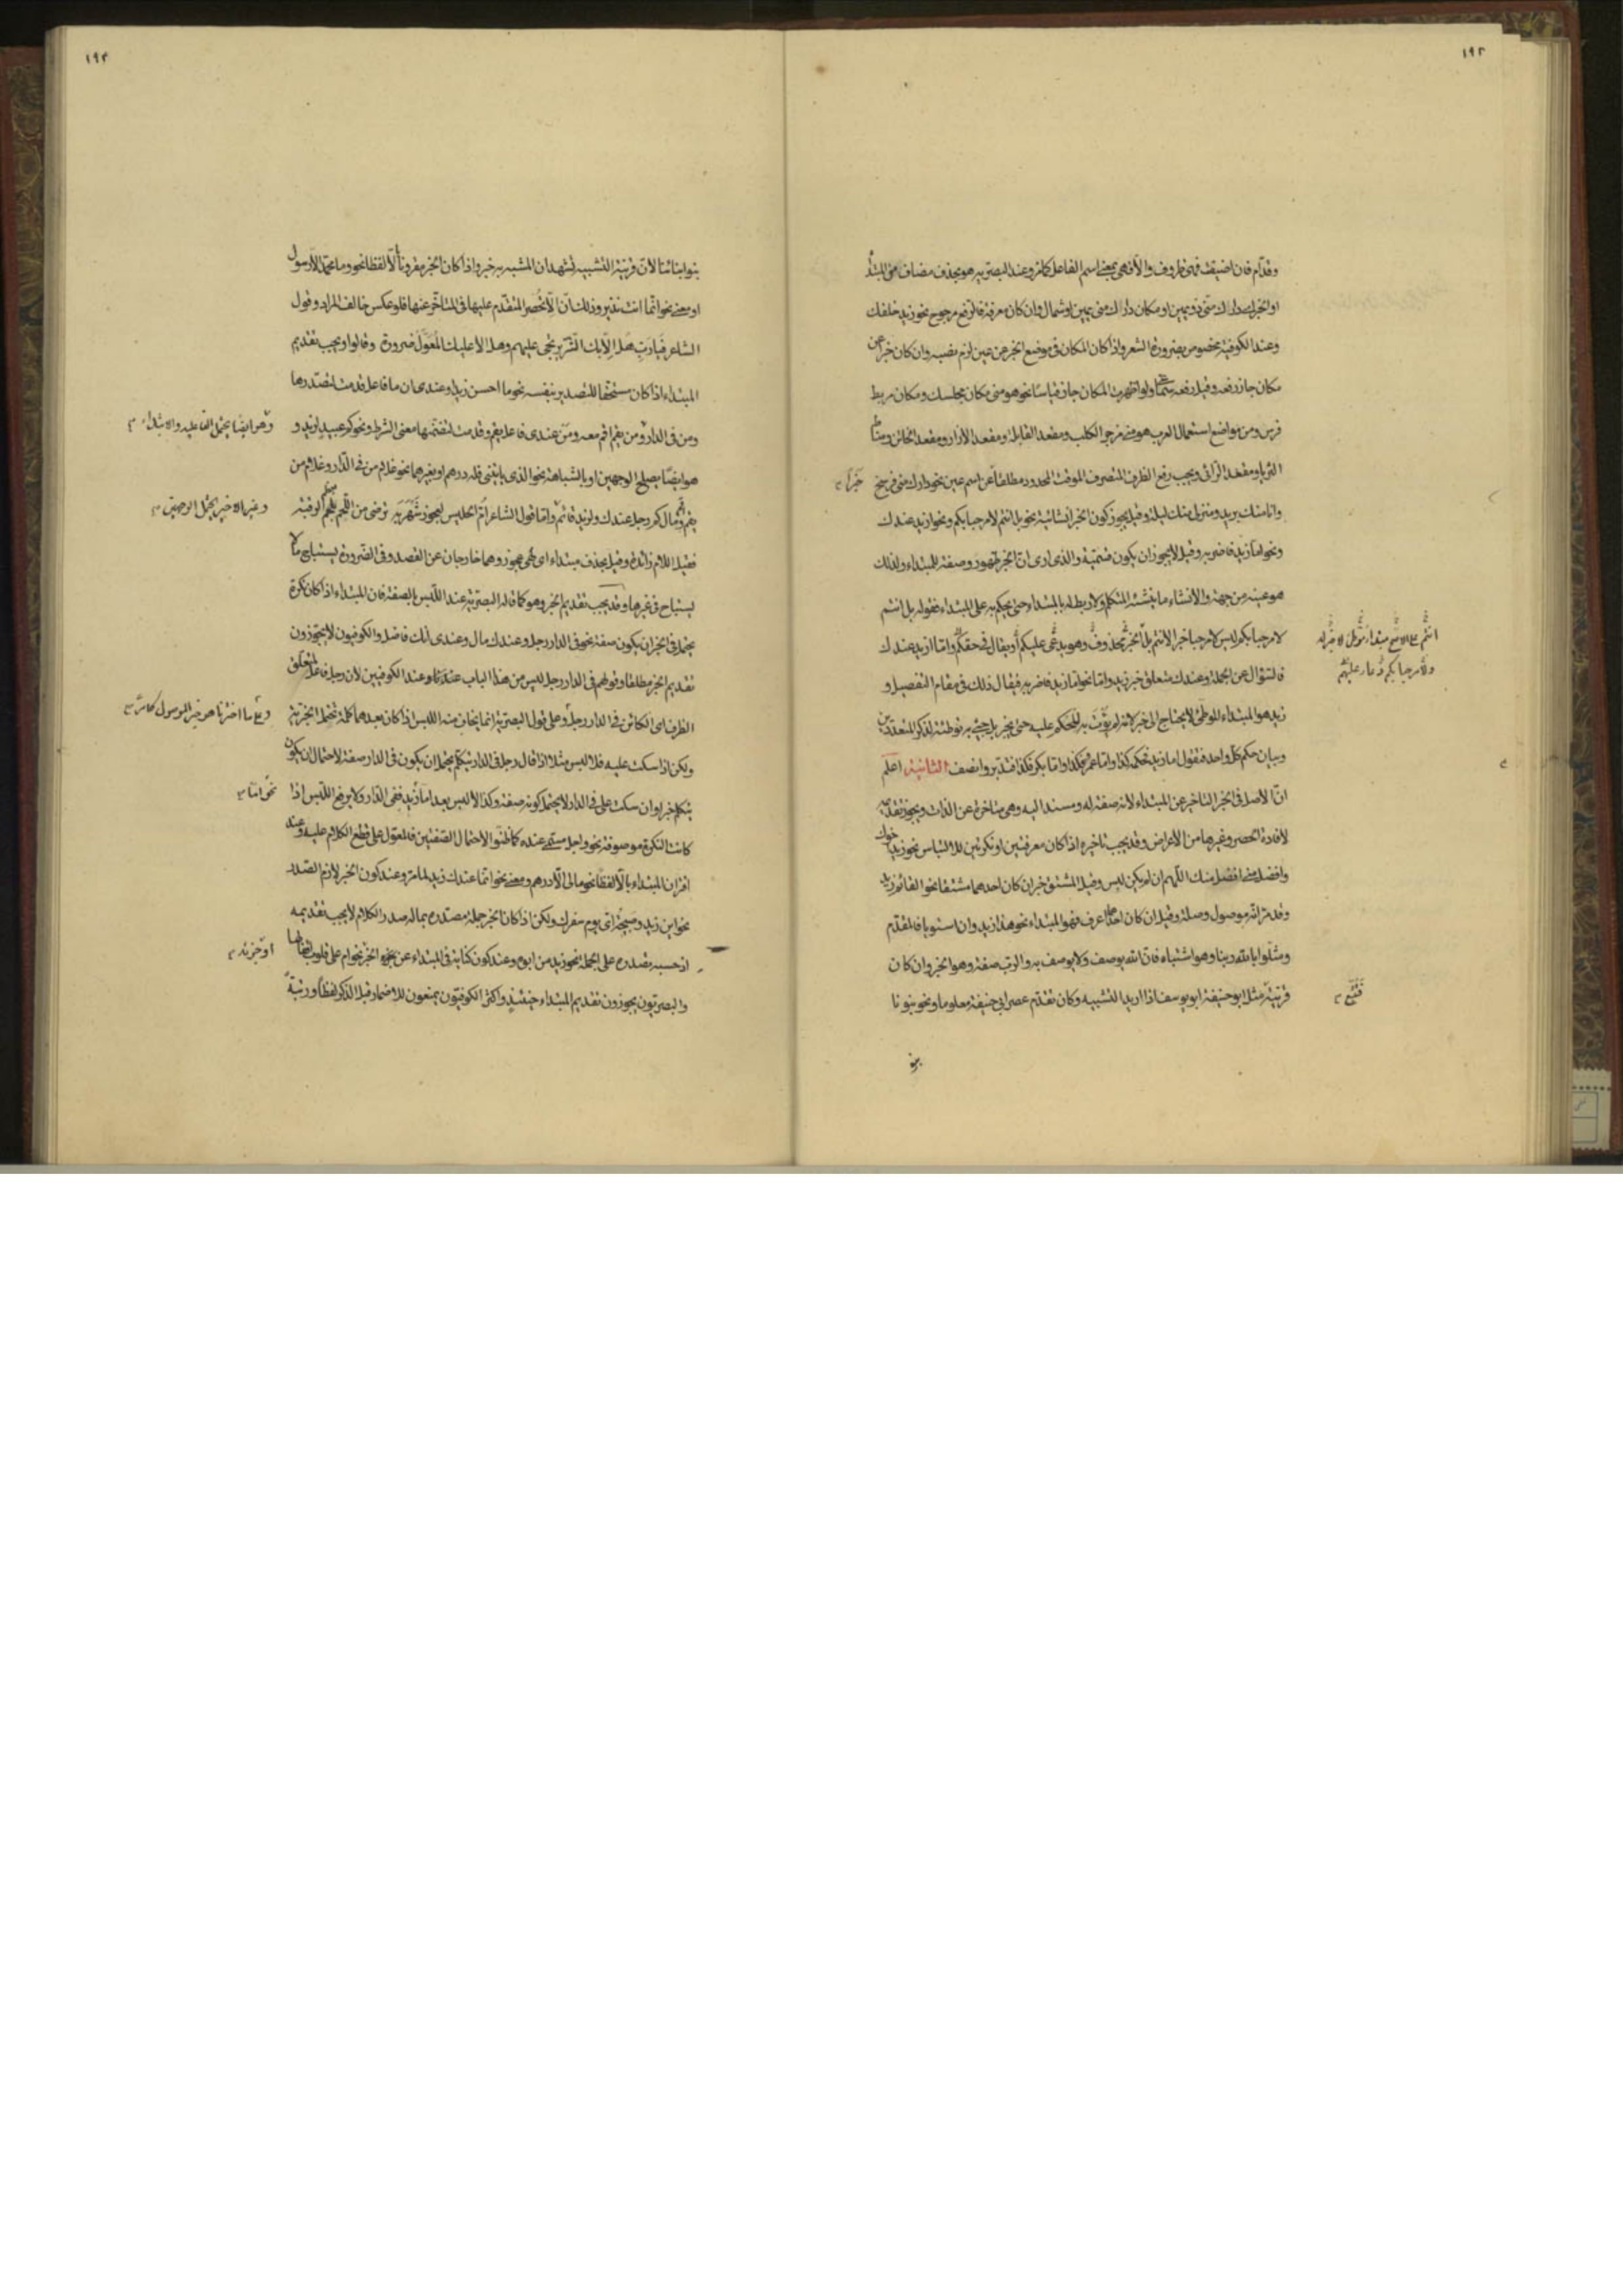 ١٩٢
وقدام فان اضيفت فهى ظروف والا فهى بمعنى اسم الفاعل كما مر وعند البصرية هو بحذف مضاف من المبتدأ
او الخبر اى دارك منى ذو يمين او مكان دارك منى يمين او شمال وان كان معرفة فالرفع مرجوح نحو زيد خلفك
وعند الكوفية مخصوص بضرورة الشعر واذا كان المكان فى موضع الخبر عن عين لزم نصبه وان كان خبرا عن
مكان جاز رفعه وقيل رفعه ولو اظهرت المكان جاز قياسا نحو هو منى مكان مجلسك ومكان مربط
فرس ومن مواضع استعمال العرب هو منى مزجر الكلب ومقعد القابلة ومقعد الازار ومقعد الخاتن ومناط
الثريا ومقعد الزانى ويجب رفع الظرف المتصرف الموقت المحدود مطلقا عن اسم عين نحو دارك منى فرسخ
خبرا
وانا منك بريد ومنزلى منك ليلة وقيل يجوز كون الخبر انشائية نحو بل انتم لا مرحبا بكم ونحو ازيد عندك
ونحو اما زيد فاضربه وقيل لا يجوز ان يكون قسمية والذى ارى ان الخبر ظهور وصفة للمبتداء ولذلك
هو عينه من جهة والانشاء ما ينشئه المتكلم ولا ربط له بالمبتداء حتى يحكم به على المبتداء فقوله بل انتم
لا مرحبا بكم ليس لا مرحبا خبرا لانتم بل الخبر محذوف وهو يدعى عليكم او يقال فى حقكم واما ازيد عندك
انتم على الاصح مبتداء توطئة لا خبر له
ولا مرحبا بكم دعاء عليهم
فالسؤال عن الجملة وعندك متعلق خبر زيد واما نحو اما زيد فاضربه فيقال ذلك فى مقام التفصيل و
زيد هو المبتداء الموطئ لا يحتاج الى خبر لانه لم يؤت به للحكم عليه حتى يخبر بل جيئ به توطئة لذكر المتعددين
وبيان حكم كل واحد فتقول اما زيد فحكمه كذا واما عمرو فكذا واما بكر فكذا فتدبر وانصف الثانية اعلم
ان الاصل فى الخبر التاخير عن المبتداء لانه صفة له ومسند اليه وهى متاخرة عن الذات ويجوز تقديمه
لافادة الحصر وغيرها من الاغراض وقد يجب تاخيره اذا كان معرفتين او نكرتين للالتباس نحو زيد اخوك
وافضل منى افضل منك اللهم ان لم يكن لبس وقيل المشتق خبر ان كان احدهما مشتقا نحو القائم زيد
وقد مر انه موصول وصلة وقيل ان كان احدهما اعرف فهو المبتداء نحو هذا زيد وان استويا فالمقدم
ومثلوا بالله ربنا وهو اشتباه فان الله يوصف ولا يوصف به والرب صفة وهو الخبر وان كان
قرينة مثل ابو حنيفة ابو يوسف اذا اريد التشبيه وكان تقدم عصر ابى حنيفة معلوما ونحو بنونا
فتتبع
بنو
١٩٣
بنو ابنائنا لان قرينة التشبيه تشهد ان المشبه به خبر واذا كان الخبر مقرونا بالا لفظا نحو وما محمد الا رسول
او معنى نحو انما انت نذير وذلك ان الا تحصر المتقدم عليها فى المتاخر عنها فلو عكس خالف المراد وقول
الشاعر فيا رب هل الا بك النصر يرتجى عليهم وهل الا عليك المعول ضرورة وقالوا ويجب تقديم
المبتداء اذا كان مستحقا للتصدير بنفسه نحو ما احسن زيدا وعندى ان ما فاعل قدمت لتصدرها
ومن فى الدار ومن يقم اقم معه ومن عندى فاعل يقم وقدمت لتضمنها معنى الشرط ونحو كم عبيد لزيد و
وهو ايضا يحتمل الفاعلية والابتداء
هو ايضا يصلح الوجهين او بالشباهة نحو الذى ياتينى فله درهم او بغيرهما نحو غلام من فى الدار وغلام من
يقم اقم ومال كم رجل عندك ولزيد قائم واما قول الشاعر ام الحليس لعجوز شهربه ترضى من اللحم بعظم الرقبة
وغير الاخير يحتمل الوجهين
فقيل اللام زائدة وقيل بحذف مبتداء اى لهى عجوز وهما خارجان عن القصد وفى الضرورة يستباح ما لا
يستباح فى غيرها وقد يجب تقديم الخبر وهو كما قاله البصرية عند اللبس بالصفة فان المبتداء اذا كان نكرة
يحتمل فى الخبر ان يكون صفة نحو فى الدار رجل وعندك مال وعندى انك فاضل والكوفيون لا يجوزون
تقديم الخبر مطلقا وقولهم فى الدار رجل ليس من هذا الباب عندنا وعند الكوفيين لان رجل فاعل لمتعلق
الظرف اى الكائن فى الدار رجل وعلى قول البصرية انما يخاف منه اللبس اذا كان بعدهما كلمة تحتمل الخبرية
وعلى ما اخترنا هو خبر الموصول كما مر
ولكن اذا سكت عليه فلا لبس مثلا اذا قال رجل فى الدار يتكلم يحتمل ان يكون فى الدار صفة لاحتمال ان يكون
يتكلم خبرا وان سكت على فى الدار لا يحتمل كونه صفة وكذا لا لبس بعد اما زيد ففى الدار ولا يرفع اللبس اذا
نحو اما
كانت النكرة موصوفة نحو واجل مسمى عنده كما ظنوا لاحتمال الصفتين فالمعول على قطع الكلام عليه وعند
اقتران المبتداء بالا لفظا نحو ما لى الا درهم ومعنى نحو انما عندك زيد لما مر وعند كون الخبر لازم الصدر
نحو اين زيد وصبيحة اى يوم سفرك ولكن اذا كان الخبر جملة مصدرة بماله صدر الكلام لا يجب تقديمه
اذ حسبه تصدره على الجملة نحو زيد من ابوه وعند كون كناية فى المبتداء عن جزء الخبر نحو ام على قلوب اقفالها
او خبرية
والبصريون يجوزون تقديم المبتداء حينئذ واكثر الكوفيون يمنعون للاضمار قبل الذكر لفظا ورتبة